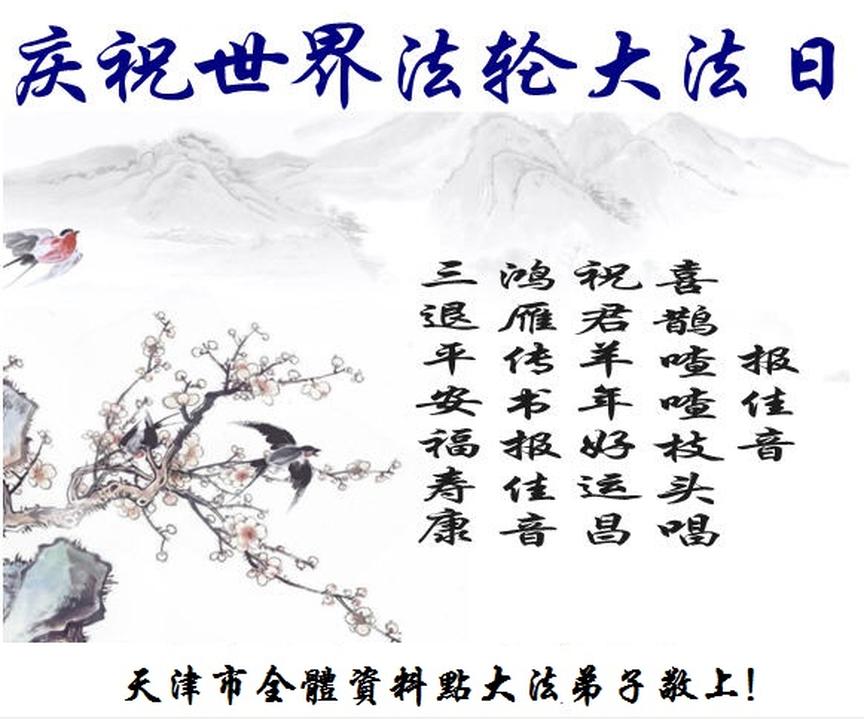 庆祝世界法轮大法日
报佳音
喜鹊喳喳枝头唱
祝君羊年好运昌
鸿雁传书报佳音
三退平安福寿康
天津市全體資料點大法弟子敬上!